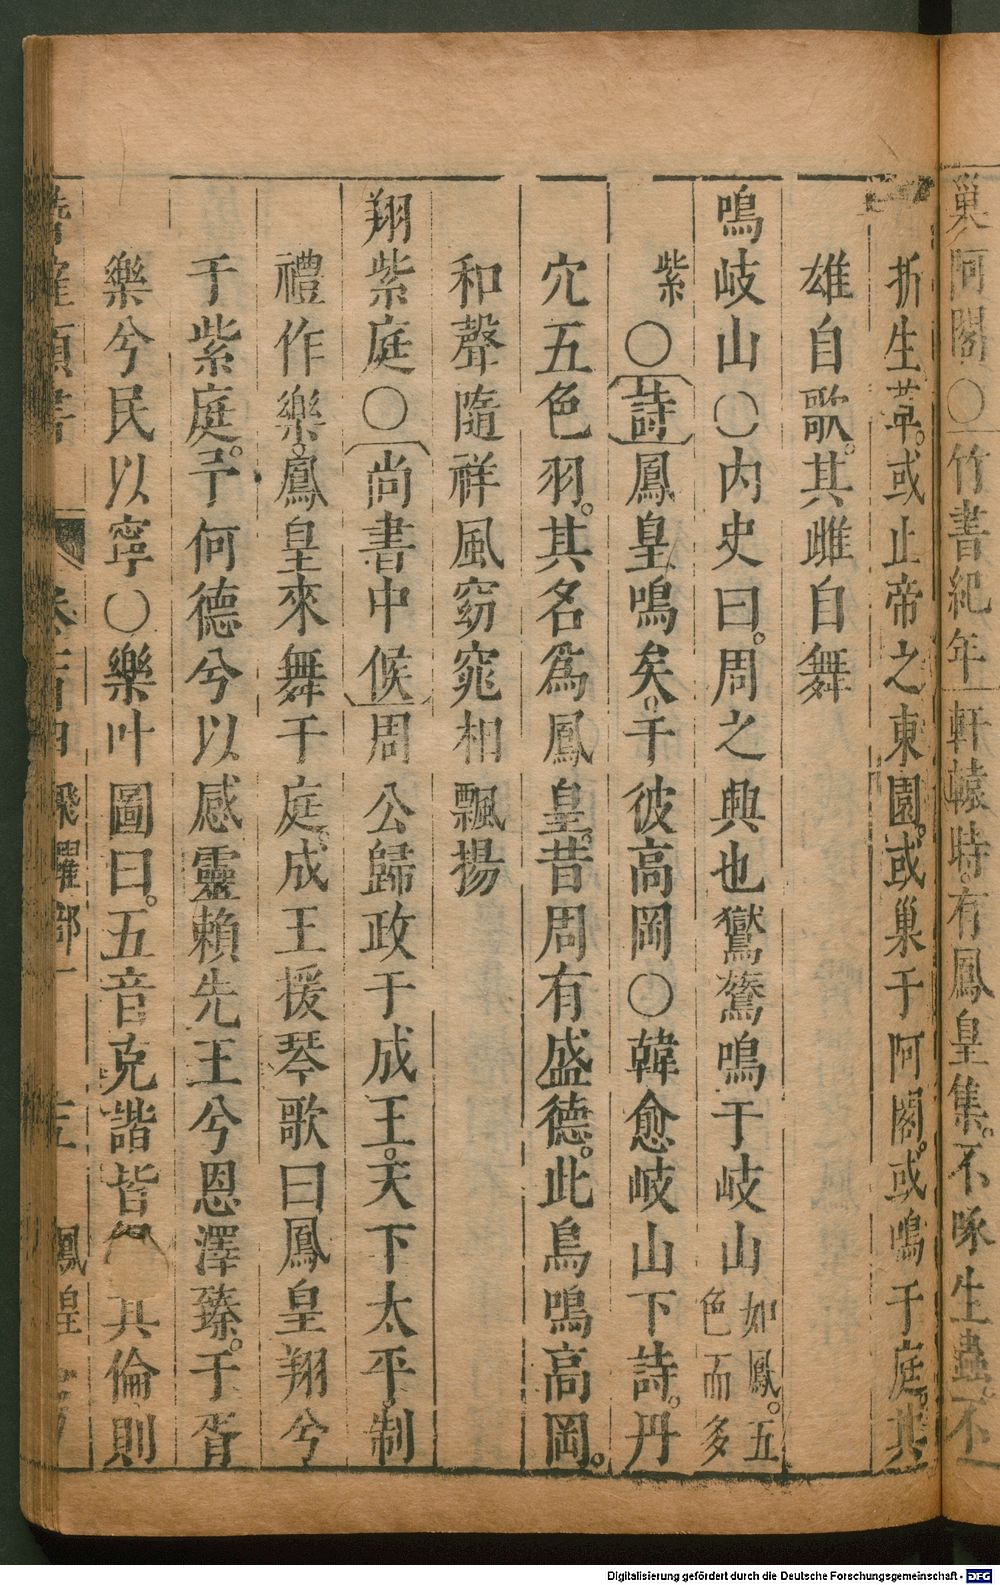 巢阿閣〇竹書紀年軒轅時。有鳳皇集。不啄生蟲。不
折生草。或止帝之東園。或巢于阿閣。或鳴于庭。其
雄自歌。其雌自舞
鳴岐山〇内史曰。周之興也鸑鷟鳴于岐山如鳳。五色而多
紫〇詩鳳皇鳴矣。于彼高岡〇韓愈岐山下詩。丹
穴五色羽。其名爲鳳皇。昔周有盛德。此鳥鳴高岡。
和聲隨祥風窈窕相飄揚
翔紫庭〇尚書中候周公歸政于成王。天下太平。制
禮作樂。鳳皇來舞于庭。成王援琴歌曰鳳皇翔兮
于紫庭。予何德兮以感靈賴先王兮恩澤臻。于胥
樂兮民以寧〇樂叶圖曰。五音克諧皆其倫則
潛確類書 卷一百四 飛躍部一 鳳皇
Digitalisierung gefördert durch die Deutsche Forschungsgemeinschaft - DFG